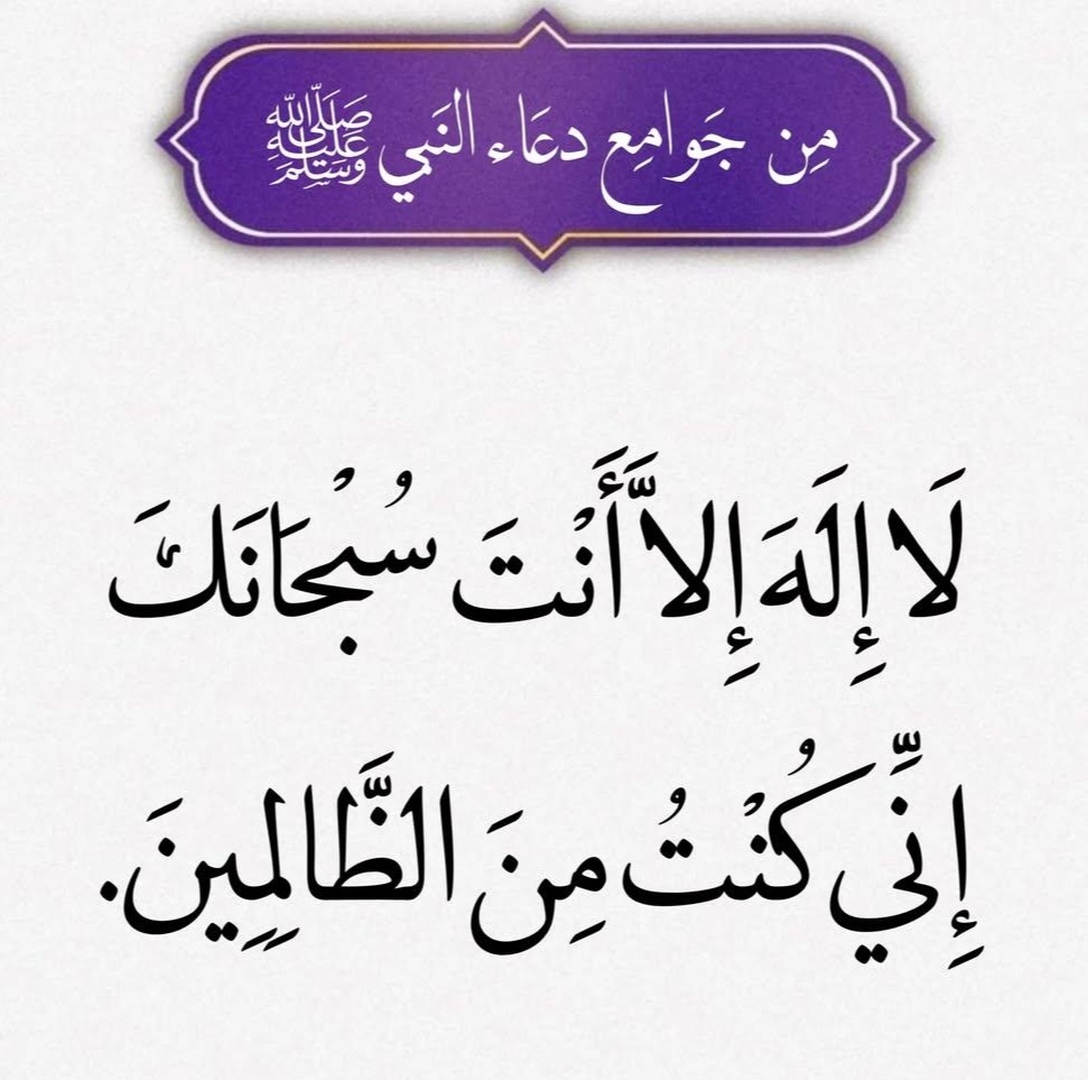 مِن جَوامِع دعَاء النَبي ﷺ
لَا إِلَهَ إِلاَّ أَنْتَ سُبْحَانَكَ
إِنِّي كُنْتُ مِنَ الظَّالِمِينَ.